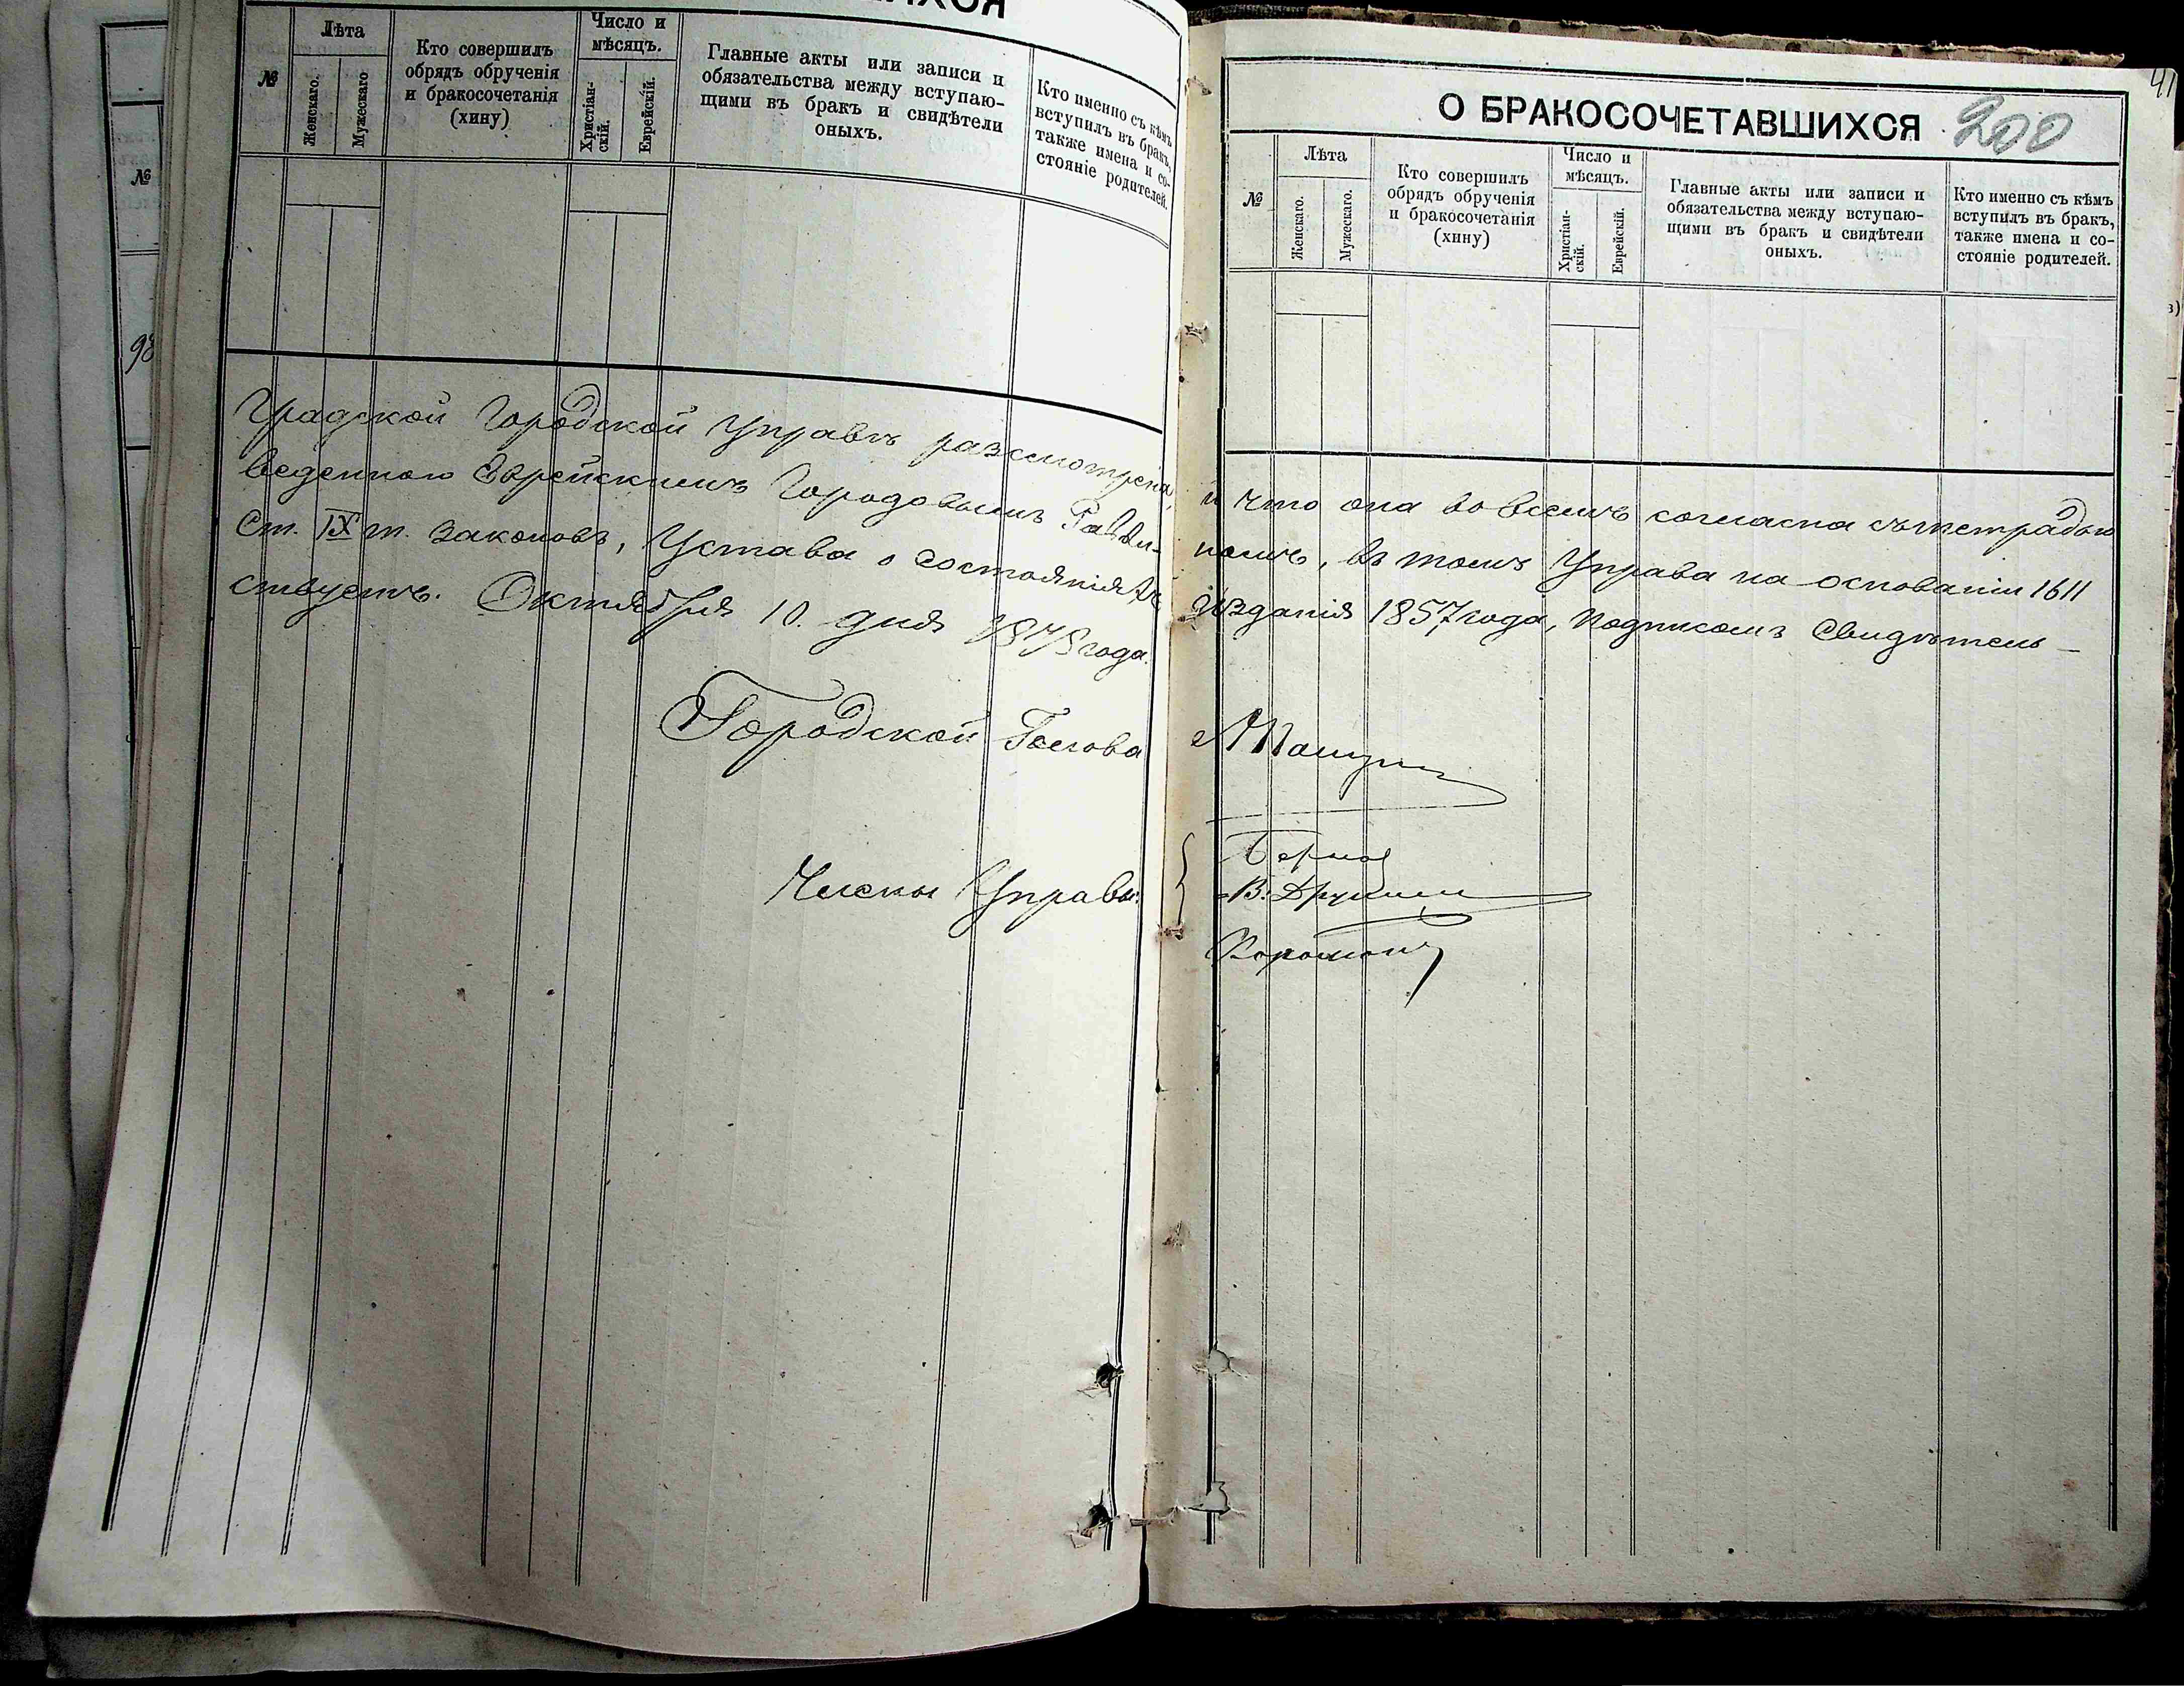 ИХСЯ
№
98
№
Лѣта
Женскаго.
Мужескаго
Кто совершилъ
обрядъ обрученія
и бракосочетанія
(хину)
Число и
мѣсяцъ.
Христіан-
скій.
Еврейскій.
Главные акты или записи и
обязательства между вступаю-
щими въ бракъ и свидѣтели
оныхъ.
Кто именно съ кѣмъ
вступилъ въ бракъ,
также имена и со-
стояніе родителей.
41
О БРАКОСОЧЕТАВШИХСЯ
200
№
Лѣта
Женскаго.
Мужескаго.
Кто совершилъ
обрядъ обрученія
и бракосочетанія
(хину)
Число и
мѣсяцъ.
Христіан-
скій.
Еврейскій.
Главные акты или записи и
обязательства между вступаю-
щими въ бракъ и свидѣтели
оныхъ.
Кто именно съ кѣмъ
вступилъ въ бракъ,
также имена и со-
стояніе родителей.
градской Городской Управѣ разсмотрена, и что она во всемъ согласна съ тетрадью
веденною Еврейскимъ Городовымъ Равви- номъ, въ томъ Управа на основаніи 1611
Ст. IX т. законовъ, Устава о состояніяхъ изданія 1857 года, подписомъ Свидѣтель-
ствуетъ. Октября 10. дня 1878 года.
Городской Голова
Члены Управы:
В.